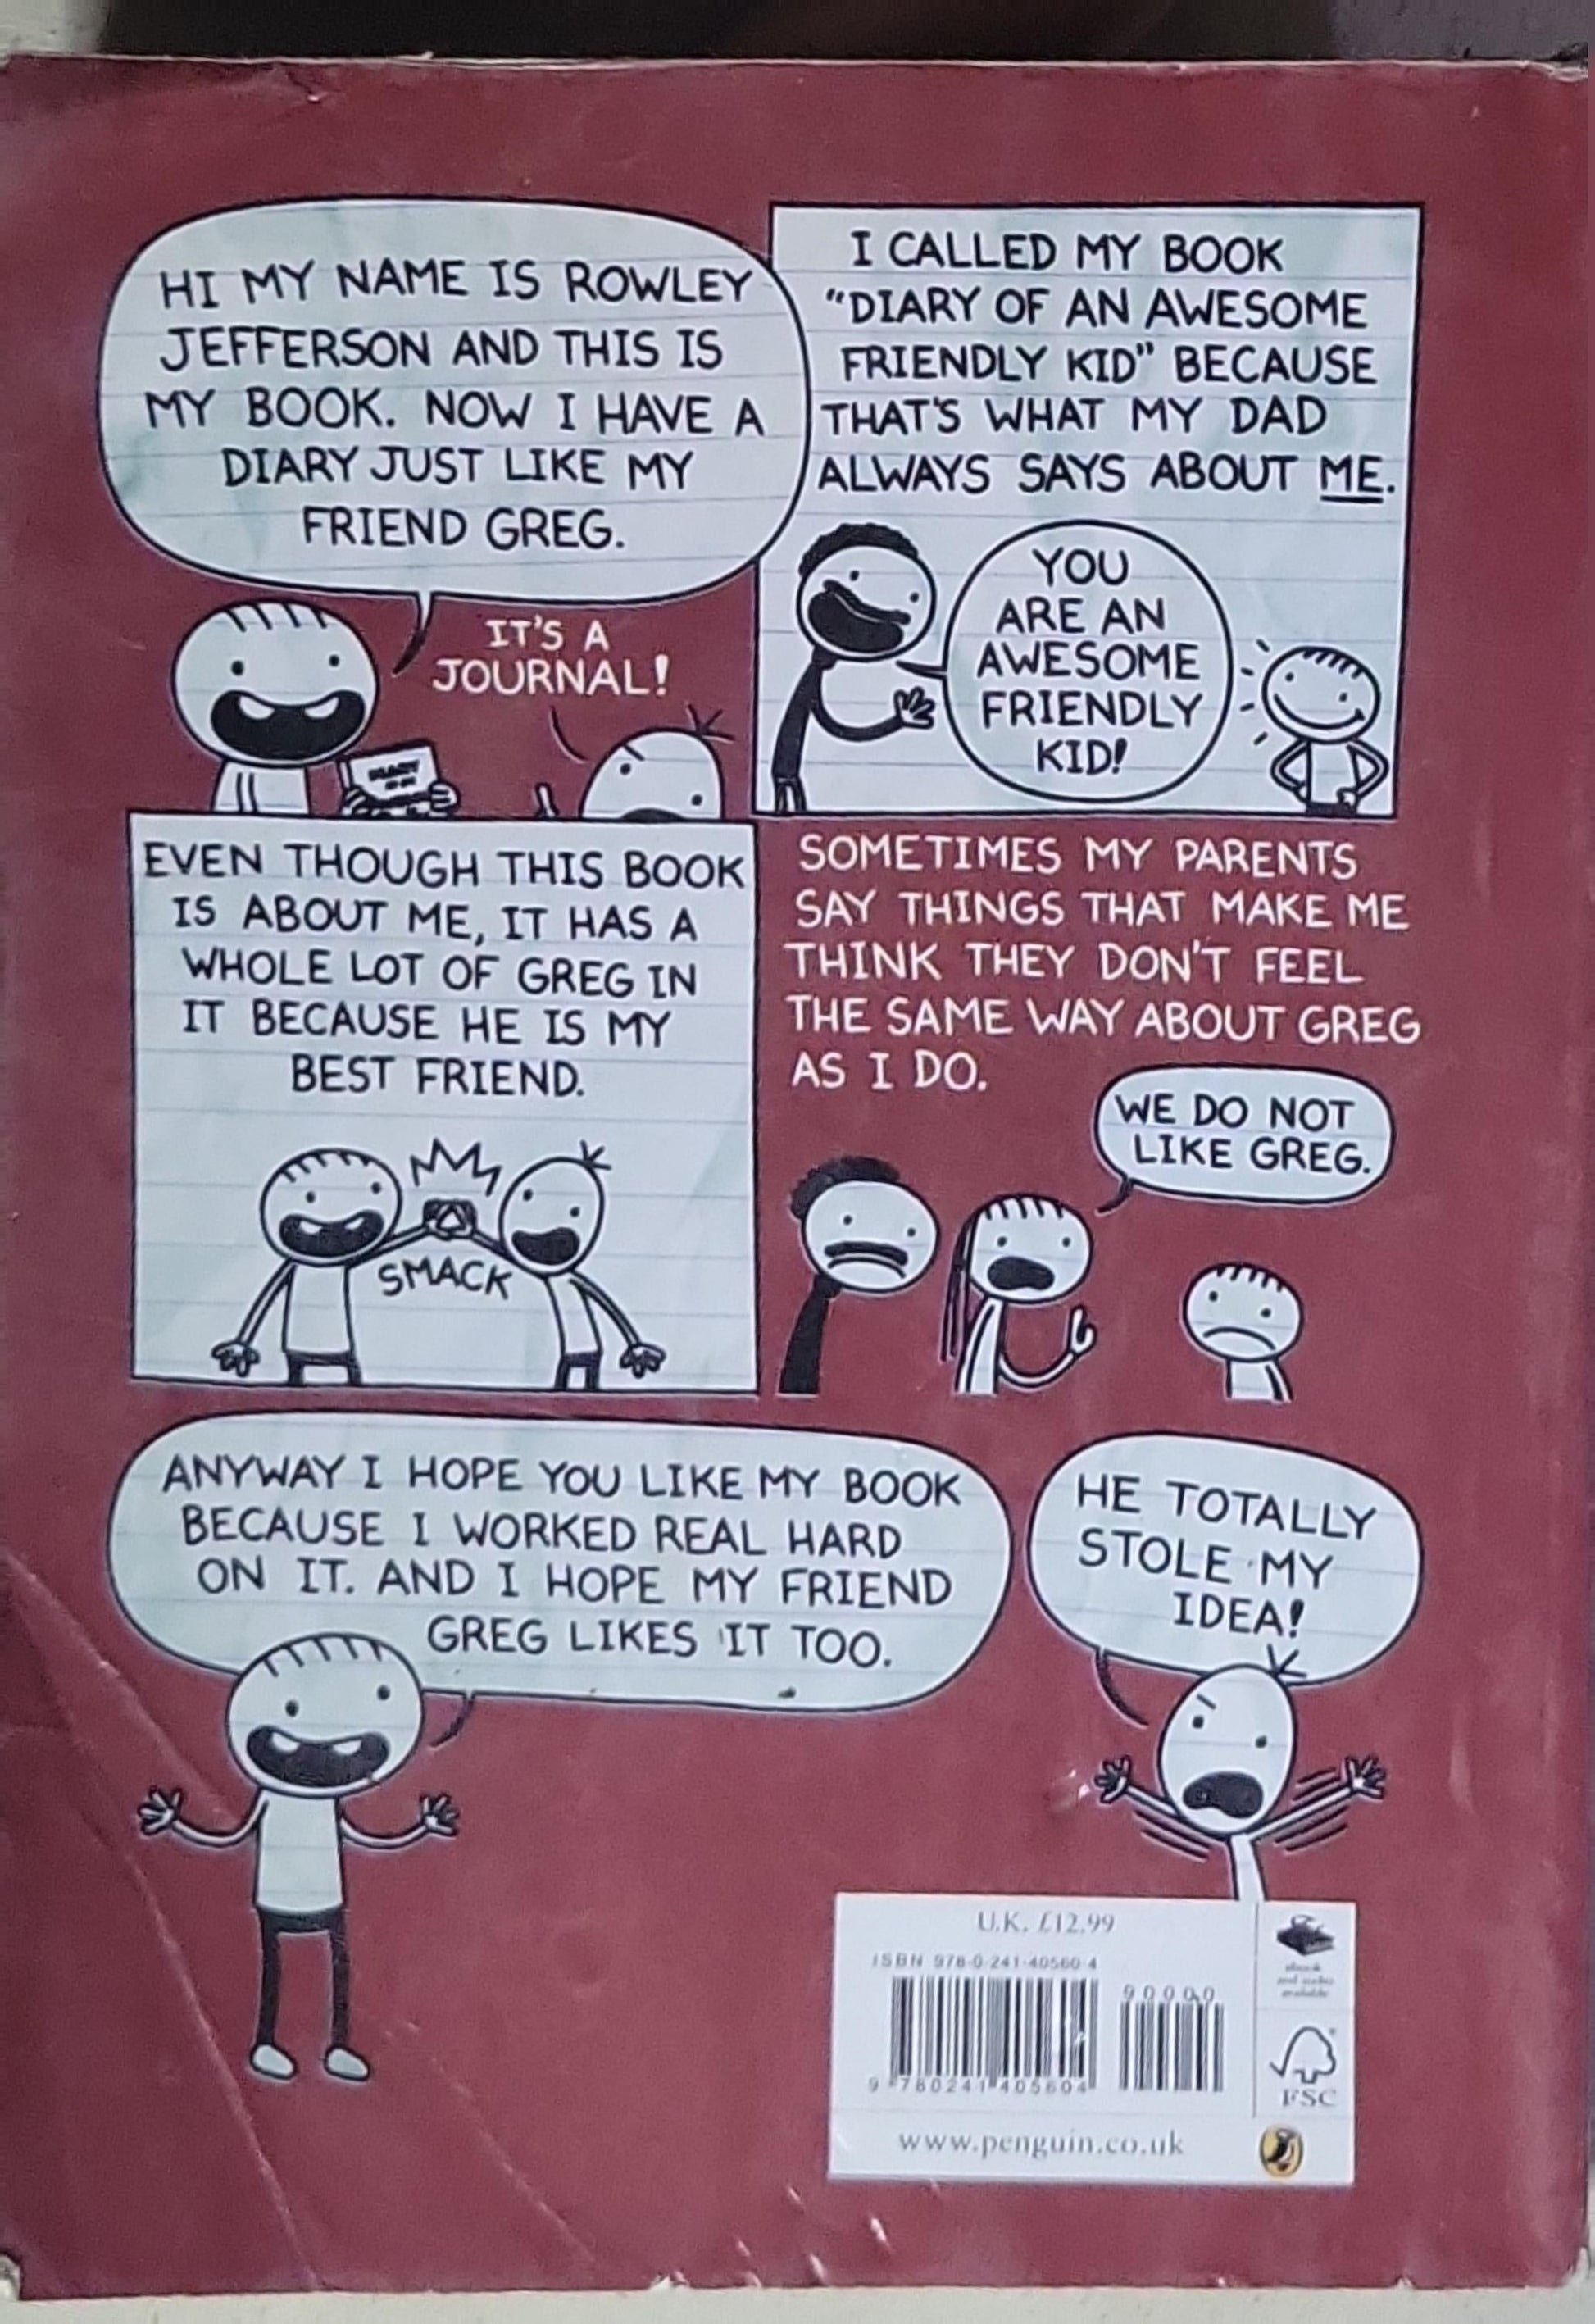 HI MY NAME IS ROWLEY
JEFFERSON AND THIS IS
MY BOOK. NOW I HAVE A
DIARY JUST LIKE MY
FRIEND GREG.
IT'S A
JOURNAL!
DIARY
I CALLED MY BOOK
"DIARY OF AN AWESOME
FRIENDLY KID" BECAUSE
THAT'S WHAT MY DAD
ALWAYS SAYS ABOUT ME.
YOU
ARE AN
AWESOME
FRIENDLY
KID!
EVEN THOUGH THIS BOOK
IS ABOUT ME, IT HAS A
WHOLE LOT OF GREG IN
IT BECAUSE HE IS MY
BEST FRIEND.
SMACK
SOMETIMES MY PARENTS
SAY THINGS THAT MAKE ME
THINK THEY DON'T FEEL
THE SAME WAY ABOUT GREG
AS I DO.
WE DO NOT
LIKE GREG.
ANYWAY I HOPE YOU LIKE MY BOOK
BECAUSE I WORKED REAL HARD
ON IT. AND I HOPE MY FRIEND
GREG LIKES IT TOO.
HE TOTALLY
STOLE MY
IDEA!
U.K. £12.99
ISBN 978-0-241-40560-4
90000
9 780241 405604
www.penguin.co.uk
ebook
and audio
available
FSC